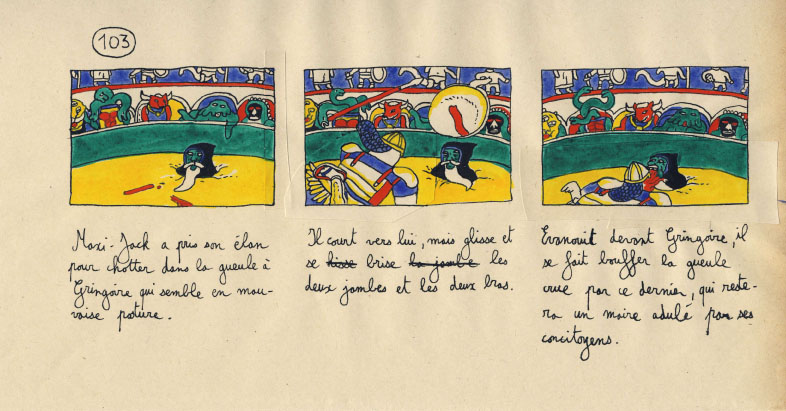 103
Maxi-Jack a pris son élan
pour shotter dans la gueule à
Gringoire qui semble en mau-
vaise posture.
Il court vers lui, mais glisse et
se brise les
deux jambes et les deux bras.
Evanouit devant Gringoire, il
se fait bouffer la gueule
crue par ce dernier, qui reste-
ra un maire adulé par ses
concitoyens.